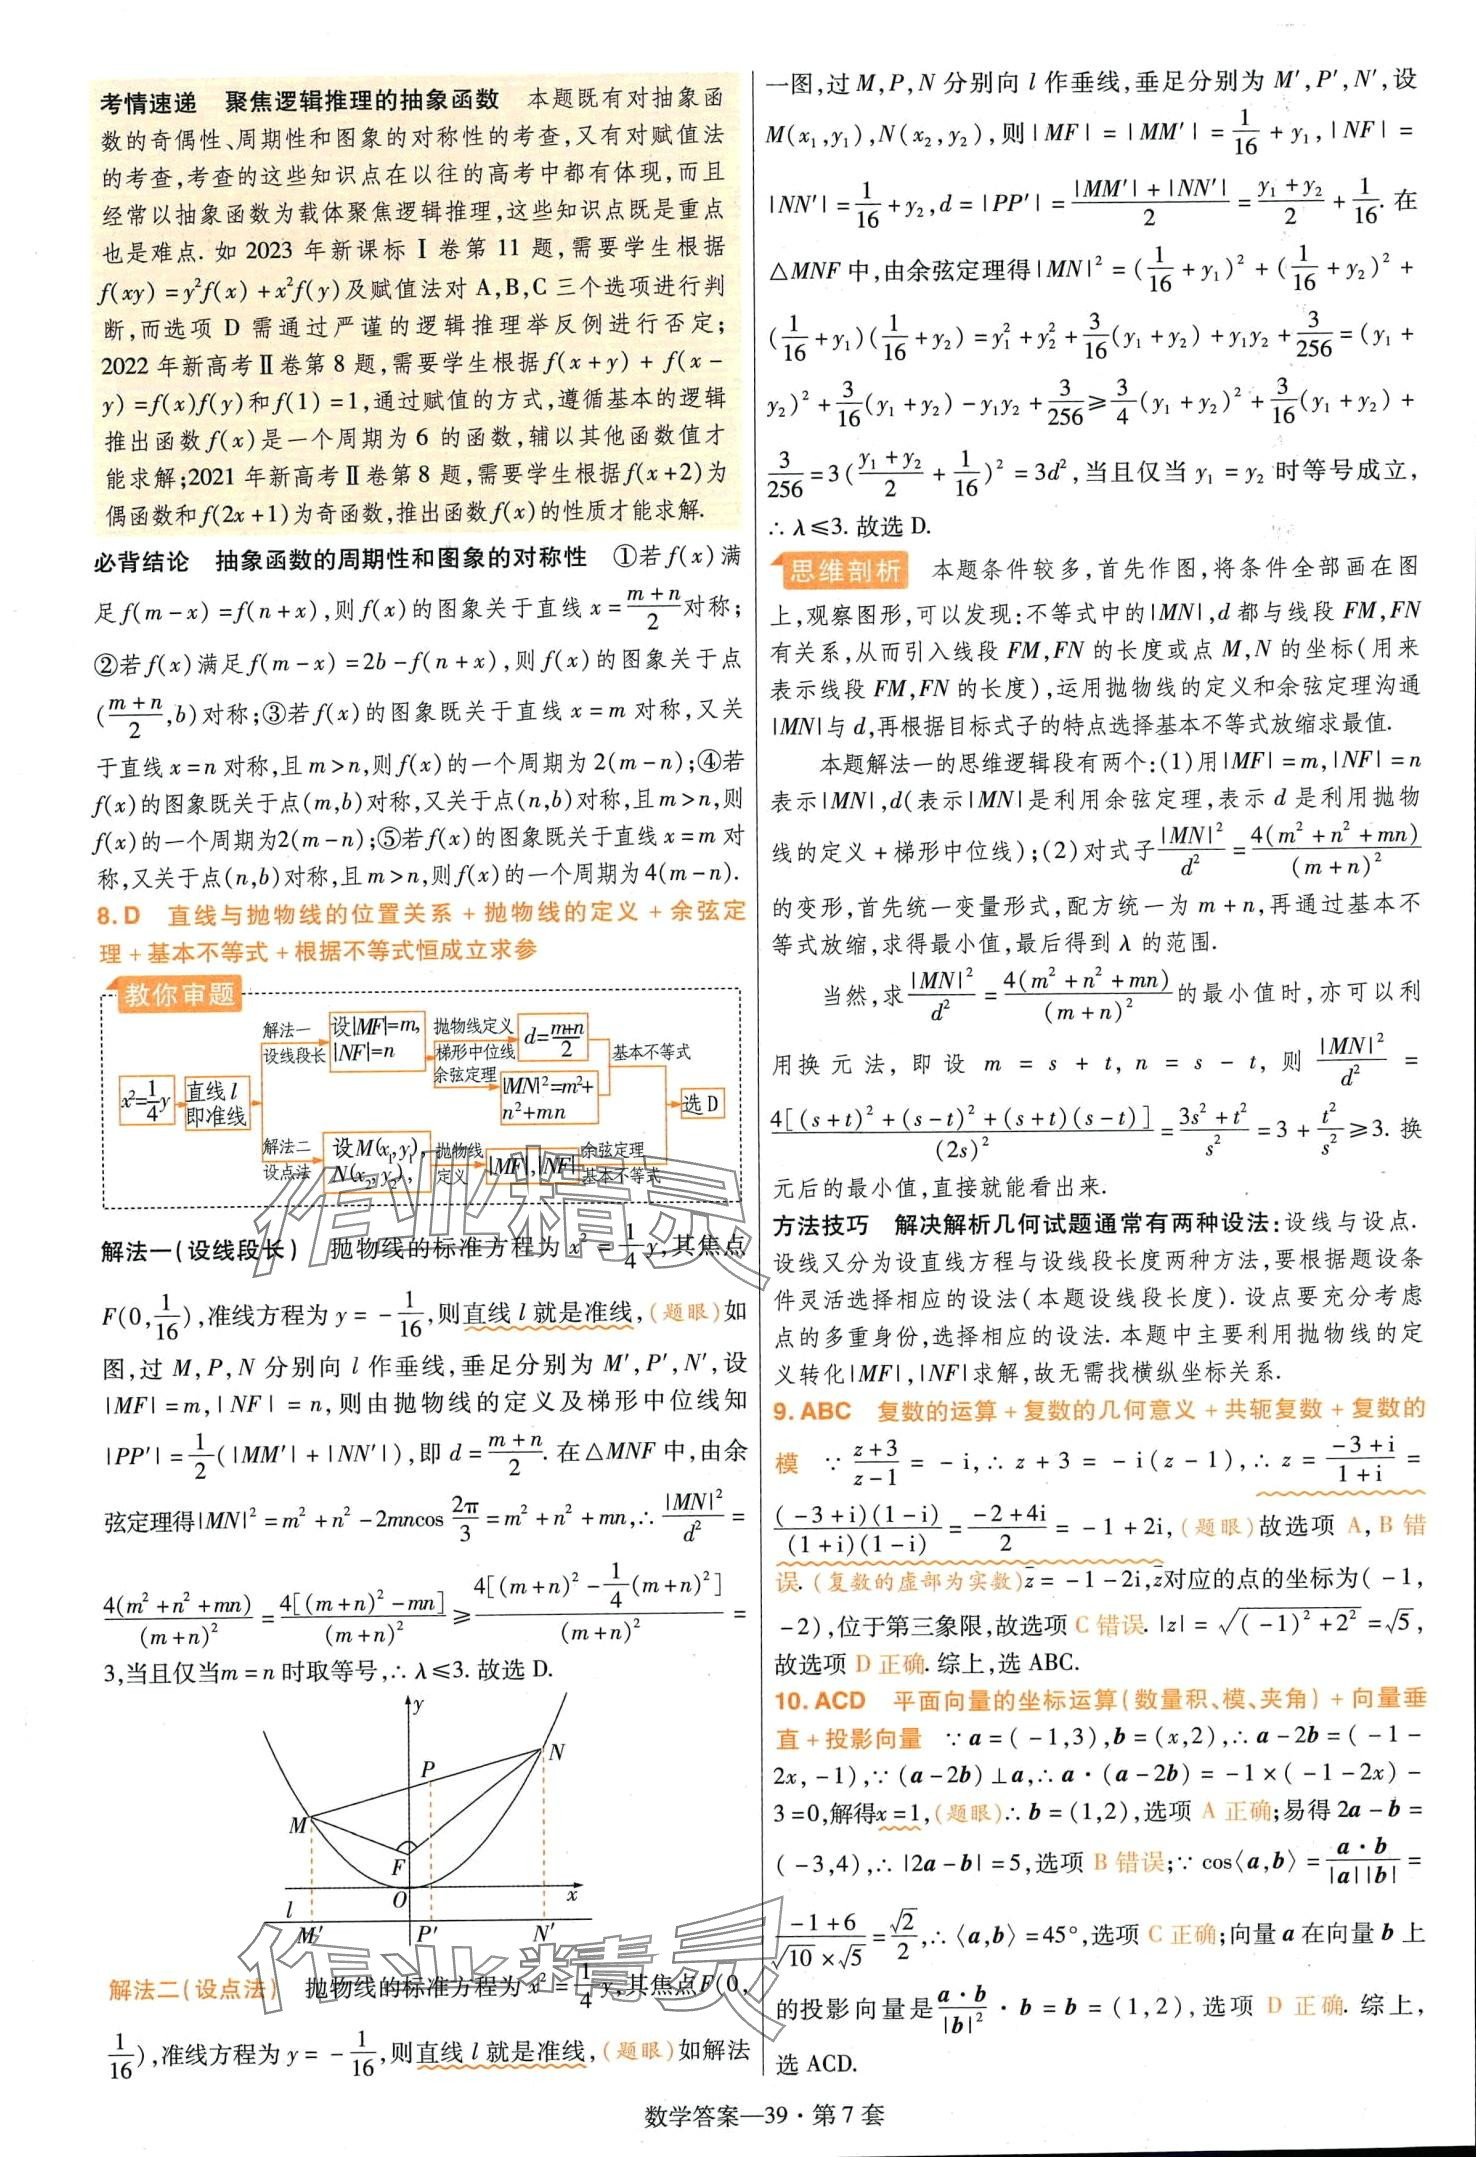 考情速递 聚焦逻辑推理的抽象函数 本题既有对抽象函
数的奇偶性、周期性和图象的对称性的考查,又有对赋值法
的考查,考查的这些知识点在以往的高考中都有体现,而且
经常以抽象函数为载体聚焦逻辑推理,这些知识点既是重点
也是难点. 如 2023 年新课标 Ⅰ 卷第 11 题,需要学生根据
f(xy)=y²f(x)+x²f(y)及赋值法对 A,B,C 三个选项进行判
断,而选项 D 需通过严谨的逻辑推理举反例进行否定;
2022 年新高考Ⅱ卷第 8 题,需要学生根据f(x+y)+f(x-
y)=f(x)f(y)和f(1)=1,通过赋值的方式,遵循基本的逻辑
推出函数 f(x)是一个周期为 6 的函数,辅以其他函数值才
能求解;2021 年新高考Ⅱ卷第 8 题,需要学生根据f(x+2)为
偶函数和f(2x+1)为奇函数,推出函数f(x)的性质才能求解.
必背结论 抽象函数的周期性和图象的对称性 ①若f(x)满
足f(m-x)=f(n+x),则f(x)的图象关于直线 x=(m+n)/2对称;
②若f(x)满足f(m-x)=2b-f(n+x),则f(x)的图象关于点
((m+n)/2,b)对称;③若f(x)的图象既关于直线 x=m 对称,又关
于直线 x=n 对称,且 m>n,则f(x)的一个周期为 2(m-n);④若
f(x)的图象既关于点(m,b)对称,又关于点(n,b)对称,且m>n,则
f(x)的一个周期为2(m-n);⑤若f(x)的图象既关于直线 x=m 对
称,又关于点(n,b)对称,且m>n,则f(x)的一个周期为4(m-n).
8. D 直线与抛物线的位置关系+抛物线的定义+余弦定
理+基本不等式+根据不等式恒成立求参
教你审题
x²=1/4y
直线 l
即准线
解法一
设线段长
设|MF|=m,
|NF|=n
抛物线定义
梯形中位线
余弦定理
d=(m+n)/2
|MN|²=m²+
n²+mn
基本不等式
选 D
解法二
设点法
设 M(x₁,y₁),
N(x₂,y₂),
抛物线
定义
|MF|,|NF|
余弦定理
基本不等式
解法一(设线段长) 抛物线的标准方程为 x²=1/4y,其焦点
F(0,1/16),准线方程为 y=-1/16,则直线 l 就是准线,(题眼)如
图,过 M,P,N 分别向 l 作垂线,垂足分别为 M′,P′,N′,设
|MF|=m,|NF|=n,则由抛物线的定义及梯形中位线知
|PP′|=1/2(|MM′|+|NN′|),即 d=(m+n)/2. 在△MNF 中,由余
弦定理得|MN|²=m²+n²-2mncos 2π/3=m²+n²+mn,∴|MN|²/d²=
4(m²+n²+mn)/(m+n)²=4[(m+n)²-mn]/(m+n)²≥4[(m+n)²-1/4(m+n)²]/(m+n)²=
3,当且仅当m=n 时取等号,∴λ≤3. 故选 D.
y
N
P
M
F
O
x
l
M′
P′
N′
解法二(设点法) 抛物线的标准方程为 x²=1/4y,其焦点F(0,
1/16),准线方程为 y=-1/16,则直线 l 就是准线,(题眼)如解法
一图,过 M,P,N 分别向 l 作垂线,垂足分别为 M′,P′,N′,设
M(x₁,y₁),N(x₂,y₂),则|MF|=|MM′|=1/16+y₁,|NF|=
|NN′|=1/16+y₂,d=|PP′|=(|MM′|+|NN′|)/2=(y₁+y₂)/2+1/16. 在
△MNF 中,由余弦定理得|MN|²=(1/16+y₁)²+(1/16+y₂)²+
(1/16+y₁)(1/16+y₂)=y₁²+y₂²+3/16(y₁+y₂)+y₁y₂+3/256=(y₁+
y₂)²+3/16(y₁+y₂)-y₁y₂+3/256≥3/4(y₁+y₂)²+3/16(y₁+y₂)+
3/256=3((y₁+y₂)/2+1/16)²=3d²,当且仅当 y₁=y₂ 时等号成立,
∴λ≤3. 故选 D.
思维剖析 本题条件较多,首先作图,将条件全部画在图
上,观察图形,可以发现:不等式中的|MN|,d 都与线段 FM,FN
有关系,从而引入线段 FM,FN 的长度或点 M,N 的坐标(用来
表示线段 FM,FN 的长度),运用抛物线的定义和余弦定理沟通
|MN|与 d,再根据目标式子的特点选择基本不等式放缩求最值.
本题解法一的思维逻辑段有两个:(1)用|MF|=m,|NF|=n
表示|MN|,d(表示|MN|是利用余弦定理,表示 d 是利用抛物
线的定义+梯形中位线);(2)对式子|MN|²/d²=4(m²+n²+mn)/(m+n)²
的变形,首先统一变量形式,配方统一为 m+n,再通过基本不
等式放缩,求得最小值,最后得到 λ 的范围.
当然,求|MN|²/d²=4(m²+n²+mn)/(m+n)²的最小值时,亦可以利
用换元法,即设 m=s+t,n=s-t,则|MN|²/d²=
4[(s+t)²+(s-t)²+(s+t)(s-t)]/(2s)²=(3s²+t²)/s²=3+t²/s²≥3. 换
元后的最小值,直接就能看出来.
方法技巧 解决解析几何试题通常有两种设法:设线与设点.
设线又分为设直线方程与设线段长度两种方法,要根据题设条
件灵活选择相应的设法(本题设线段长度). 设点要充分考虑
点的多重身份,选择相应的设法. 本题中主要利用抛物线的定
义转化|MF|,|NF|求解,故无需找横纵坐标关系.
9. ABC 复数的运算+复数的几何意义+共轭复数+复数的
模 ∵(z+3)/(z-1)=-i,∴z+3=-i(z-1),∴z=(-3+i)/(1+i)=
(-3+i)(1-i)/(1+i)(1-i)=(-2+4i)/2=-1+2i,(题眼)故选项 A,B 错
误.(复数的虚部为实数)z̄=-1-2i,z̄对应的点的坐标为(-1,
-2),位于第三象限,故选项 C 错误. |z|=√((-1)²+2²)=√5,
故选项 D 正确. 综上,选 ABC.
10. ACD 平面向量的坐标运算(数量积、模、夹角)+向量垂
直+投影向量 ∵a=(-1,3),b=(x,2),∴a-2b=(-1-
2x,-1),∵(a-2b)⊥a,∴a·(a-2b)=-1×(-1-2x)-
3=0,解得x=1,(题眼)∴b=(1,2),选项 A 正确;易得 2a-b=
(-3,4),∴|2a-b|=5,选项 B 错误;∵cos⟨a,b⟩=a·b/|a||b|=
(-1+6)/(√10×√5)=√2/2,∴⟨a,b⟩=45°,选项 C 正确;向量 a 在向量 b 上
的投影向量是a·b/|b|²·b=b=(1,2),选项 D 正确. 综上,
选 ACD.
数学答案—39·第 7 套
作业精灵
作业精灵